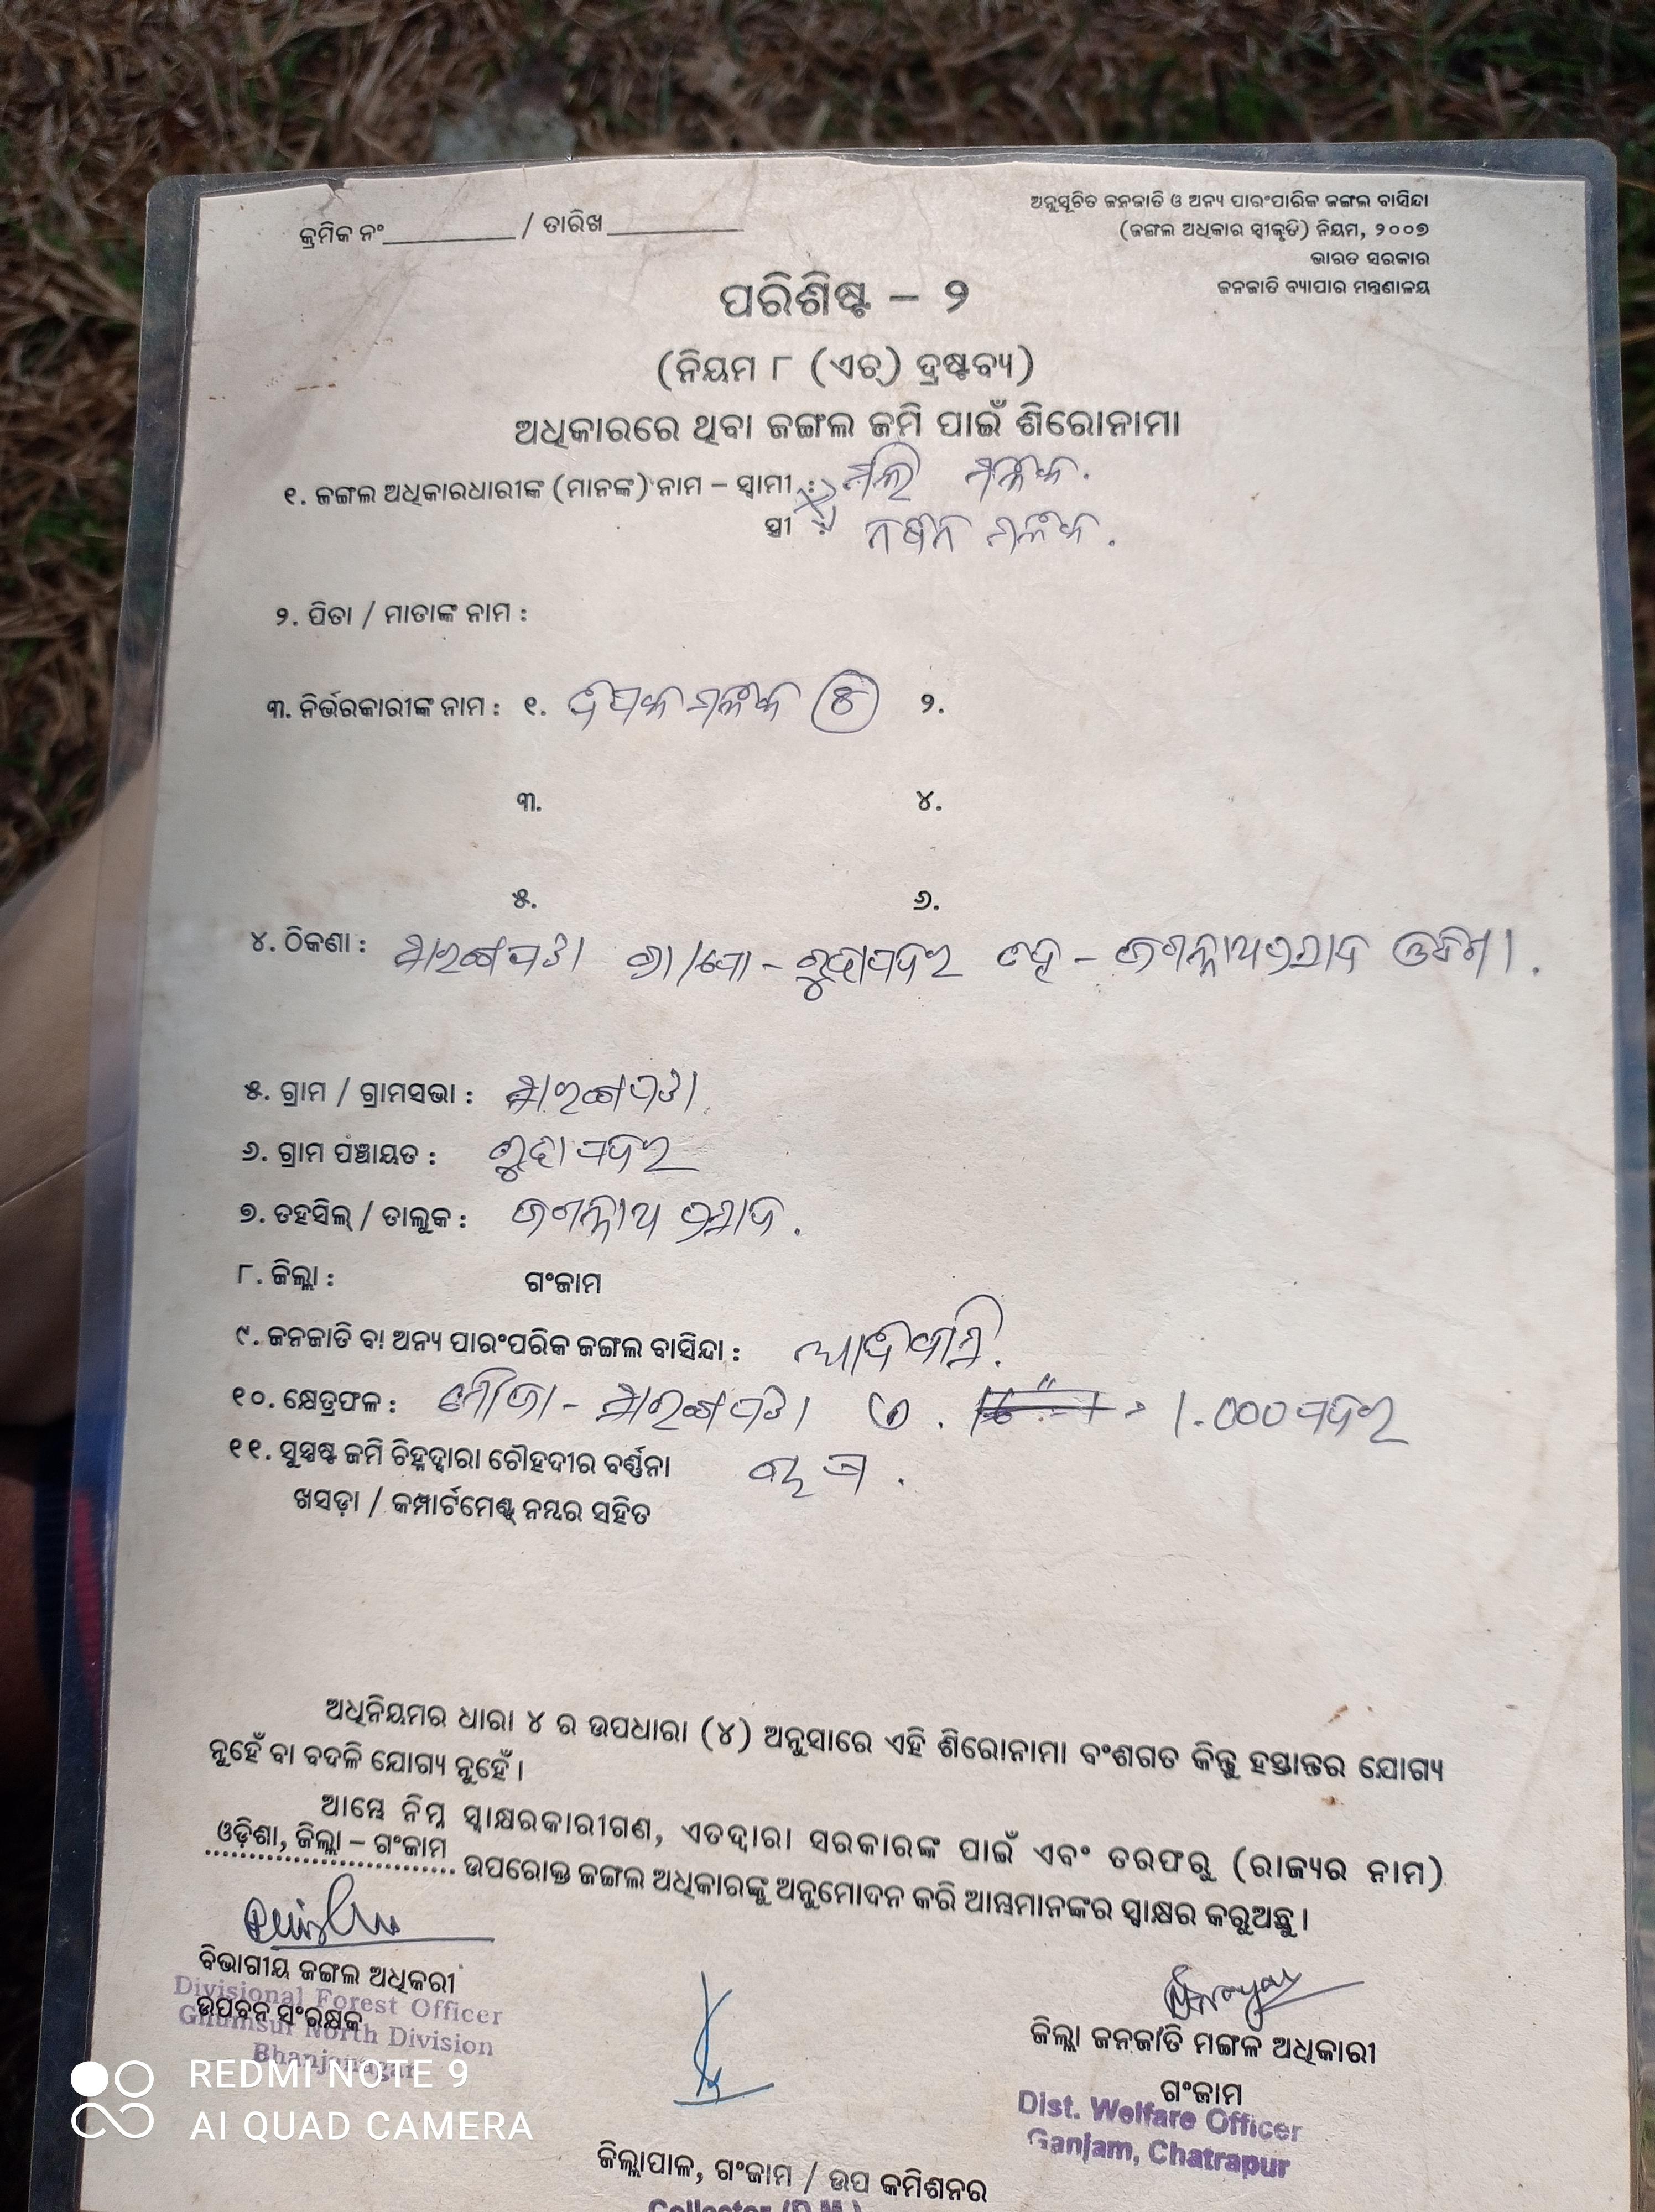 କ୍ରମିକ ନଂ__________ / ତାରିଖ__________
ଅନୁସୂଚିତ ଜନଜାତି ଓ ଅନ୍ୟ ପାରଂପାରିକ ଜଙ୍ଗଲ ବାସିନ୍ଦା
(ଜଙ୍ଗଲ ଅଧିକାର ସ୍ୱୀକୃତି) ନିୟମ, ୨୦୦୭
ଭାରତ ସରକାର
ଜନଜାତି ବ୍ୟାପାର ମନ୍ତ୍ରଣାଳୟ
ପରିଶିଷ୍ଟ – ୨
(ନିୟମ ୮ (ଏଚ୍) ଦ୍ରଷ୍ଟବ୍ୟ)
ଅଧିକାରରେ ଥିବା ଜଙ୍ଗଲ ଜମି ପାଇଁ ଶିରୋନାମା
୧. ଜଙ୍ଗଲ ଅଧିକାରଧାରୀଙ୍କ (ମାନଙ୍କ) ନାମ – ସ୍ୱାମୀ :
ସ୍ତ୍ରୀ :
୨. ପିତା / ମାତାଙ୍କ ନାମ :
୩. ନିର୍ଭରକାରୀଙ୍କ ନାମ : ୧. ୨.
୩. ୪.
୫. ୬.
୪. ଠିକଣା : ଜଗନ୍ନାଥପ୍ରସାଦ ଓଡିଶା.
୫. ଗ୍ରାମ / ଗ୍ରାମସଭା :
୬. ଗ୍ରାମ ପଞ୍ଚାୟତ :
୭. ତହସିଲ୍ / ତାଲୁକ : ଜଗନ୍ନାଥ ପ୍ରସାଦ.
୮. ଜିଲ୍ଲା : ଗଂଜାମ
୯. ଜନଜାତି ବା ଅନ୍ୟ ପାରଂପରିକ ଜଙ୍ଗଲ ବାସିନ୍ଦା : ଆଦିବାସି.
୧୦. କ୍ଷେତ୍ରଫଳ : ମୌଜା – 1.000
୧୧. ସୁସ୍ପଷ୍ଟ ଜମି ଚିହ୍ନଦ୍ୱାରା ଚୌହଦୀର ବର୍ଣ୍ଣନା
ଖସଡ଼ା / କମ୍ପାର୍ଟମେଣ୍ଟ୍ ନମ୍ବର ସହିତ
ଅଧିନିୟମର ଧାରା ୪ ର ଉପଧାରା (୪) ଅନୁସାରେ ଏହି ଶିରୋନାମା ବଂଶଗତ କିନ୍ତୁ ହସ୍ତାନ୍ତର ଯୋଗ୍ୟ
ନୁହେଁ ବା ବଦଳି ଯୋଗ୍ୟ ନୁହେଁ ।
ଆମ୍ଭେ ନିମ୍ନ ସ୍ୱାକ୍ଷରକାରୀଗଣ, ଏତଦ୍ୱାରା ସରକାରଙ୍କ ପାଇଁ ଏବଂ ତରଫରୁ (ରାଜ୍ୟର ନାମ)
ଓଡ଼ିଶା, ଜିଲ୍ଲା – ଗଂଜାମ ଉପରୋକ୍ତ ଜଙ୍ଗଲ ଅଧିକାରଙ୍କୁ ଅନୁମୋଦନ କରି ଆମ୍ଭମାନଙ୍କର ସ୍ୱାକ୍ଷର କରୁଅଛୁ ।
ବିଭାଗୀୟ ଜଙ୍ଗଲ ଅଧିକରୀ
Divisional Forest Officer
ଉପବନ ସଂରକ୍ଷକ
Ghumsur North Division
Bhanjanagar
ଜିଲ୍ଲା ଜନଜାତି ମଙ୍ଗଳ ଅଧିକାରୀ
ଗଂଜାମ
Dist. Welfare Officer
Ganjam, Chatrapur
ଜିଲ୍ଲାପାଳ, ଗଂଜାମ / ଉପ କମିଶନର
Collector (D.M.)
REDMI NOTE 9
AI QUAD CAMERA